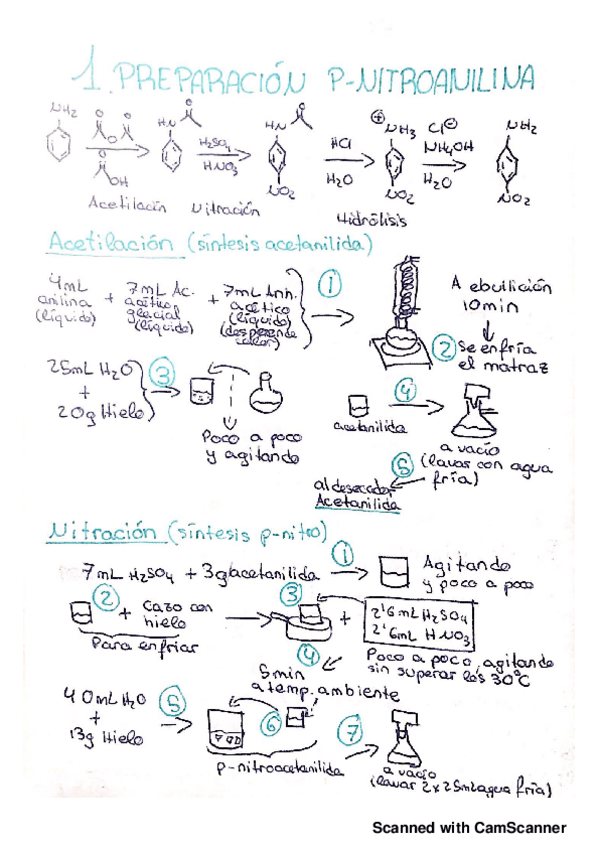 1. PREPARACIÓN P-NITROANILINA
NH2
HN
O
HN
O
⊕NH3 Cl⊖
NH2
O O
OH
H2SO4
HNO3
HCl
H2O
NH4OH
H2O
NO2
NO2
NO2
Acetilación
Nitración
Hidrólisis
Acetilación (síntesis acetanilida)
4mL anilina (líquido)
+
7mL Ac. acético glacial (líquido)
+
7mL Anh. acético (líquido) (desprende calor)
1
A ebullición
10min
2 Se enfría
el matraz
25mL H2O
+
20g Hielo
3
Poco a poco
y agitando
4
acetanilida
a vacío
(lavar con agua
fría)
5
al desecador
Acetanilida
Nitración (síntesis p-nitro)
7mL H2SO4 + 3g acetanilida
1
Agitando
y poco a poco
2
+ Cazo con
hielo
Para enfriar
3
+
2'6mL H2SO4
2'6mL HNO3
Poco a poco, agitando
sin superar los 30°C
4
5min
a temp. ambiente
40mL H2O
+
13g Hielo
5
6
p-nitroacetanilida
7
a vacío
(lavar 2x25mL agua fría)
Scanned with CamScanner